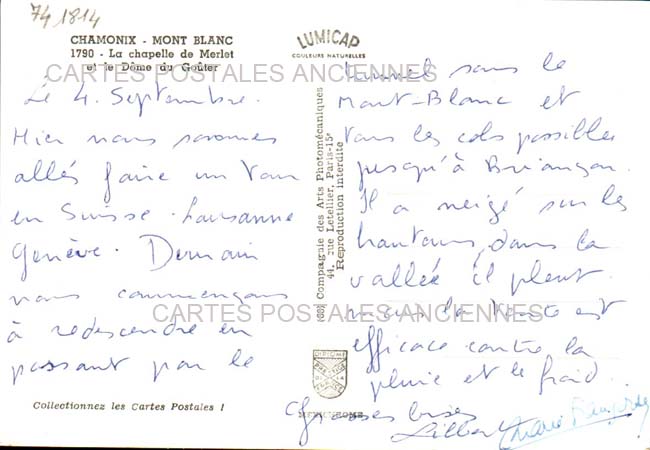 74 1814
CHAMONIX - MONT BLANC
1790 - La chapelle de Merlet
et le Dôme du Goûter
LUMICAP
COULEURS NATURELLES
CARTES POSTALES ANCIENNES
Le 4. Septembre.
Hier nous sommes
allés faire un tour
en Suisse. Lausanne
Genève. Demain
nous commençons
à redescendre en
passant par le
tunnel sous le
Mont-Blanc et
tous les cols possibles
jusqu'à Briançon.
Il a neigé sur les
hauteurs, dans la
vallée il pleut.
mais la tente est
efficace contre la
pluie et le froid.
Grosses bises
Gilbert
(688) Compagnie des Arts Photomécaniques
44, rue Letellier, Paris-15e
Reproduction interdite
CARTES POSTALES ANCIENNES
Collectionnez les Cartes Postales !